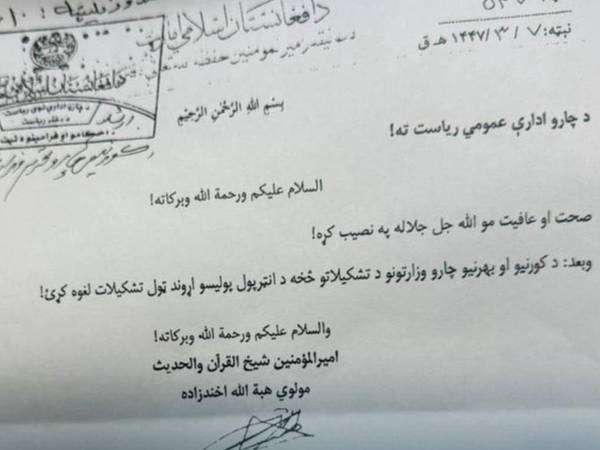 د افغانستان اسلامي امارت
نېټه: ۱۴۴۷/۳/۷ هـ ق
بِسْمِ اللهِ الرَّحْمنِ الرَّحِيْمِ
د چارو ادارې عمومي ریاست ته!
السلام علیکم ورحمة الله وبرکاته!
صحت او عافیت مو الله جل جلاله په نصیب کړه!
وبعد: د کورنیو او بهرنیو چارو وزارتونو د تشکیلاتو څخه د انټرپول پولیسو اړوند ټول تشکیلات لغوه کړئ!
والسلام علیکم ورحمة الله وبرکاته!
امیرالمؤمنین شیخ القرآن والحدیث
مولوي هبة الله اخندزاده